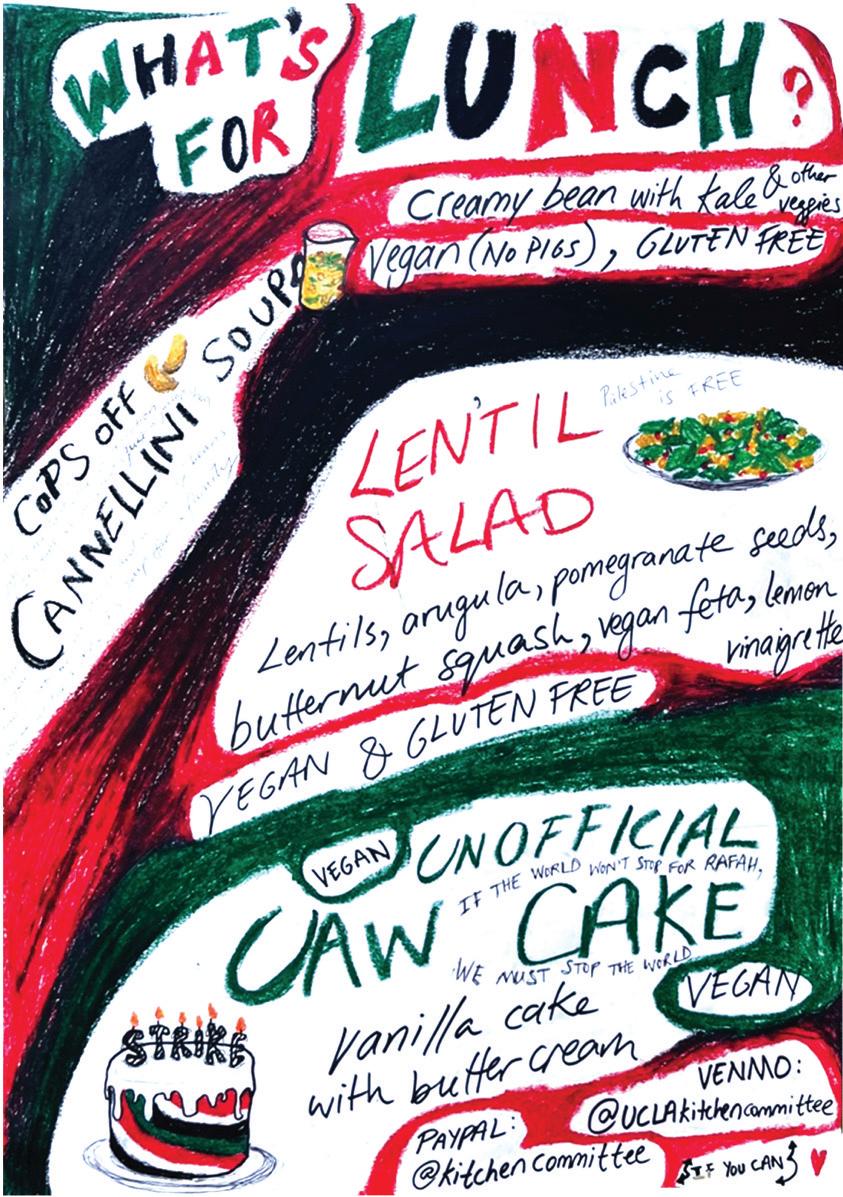 WHAT'S
FOR
LUNCH?
Creamy bean with kale & other veggies
Vegan (NO PIGS), GLUTEN FREE
COPS OFF
CANNELLINI SOUP
LENTIL
SALAD
Palestine
is FREE
Lentils, arugula, pomegranate seeds,
butternut squash, vegan feta, lemon
vinaigrette
VEGAN & GLUTEN FREE
VEGAN
UNOFFICIAL
IF THE WORLD WON'T STOP FOR RAFAH,
UAW CAKE
WE MUST STOP THE WORLD
VEGAN
Vanilla cake
with butter cream
STRIKE
VENMO:
@UCLAkitchencommittee
PAYPAL:
@kitchencommittee
$ IF YOU CAN